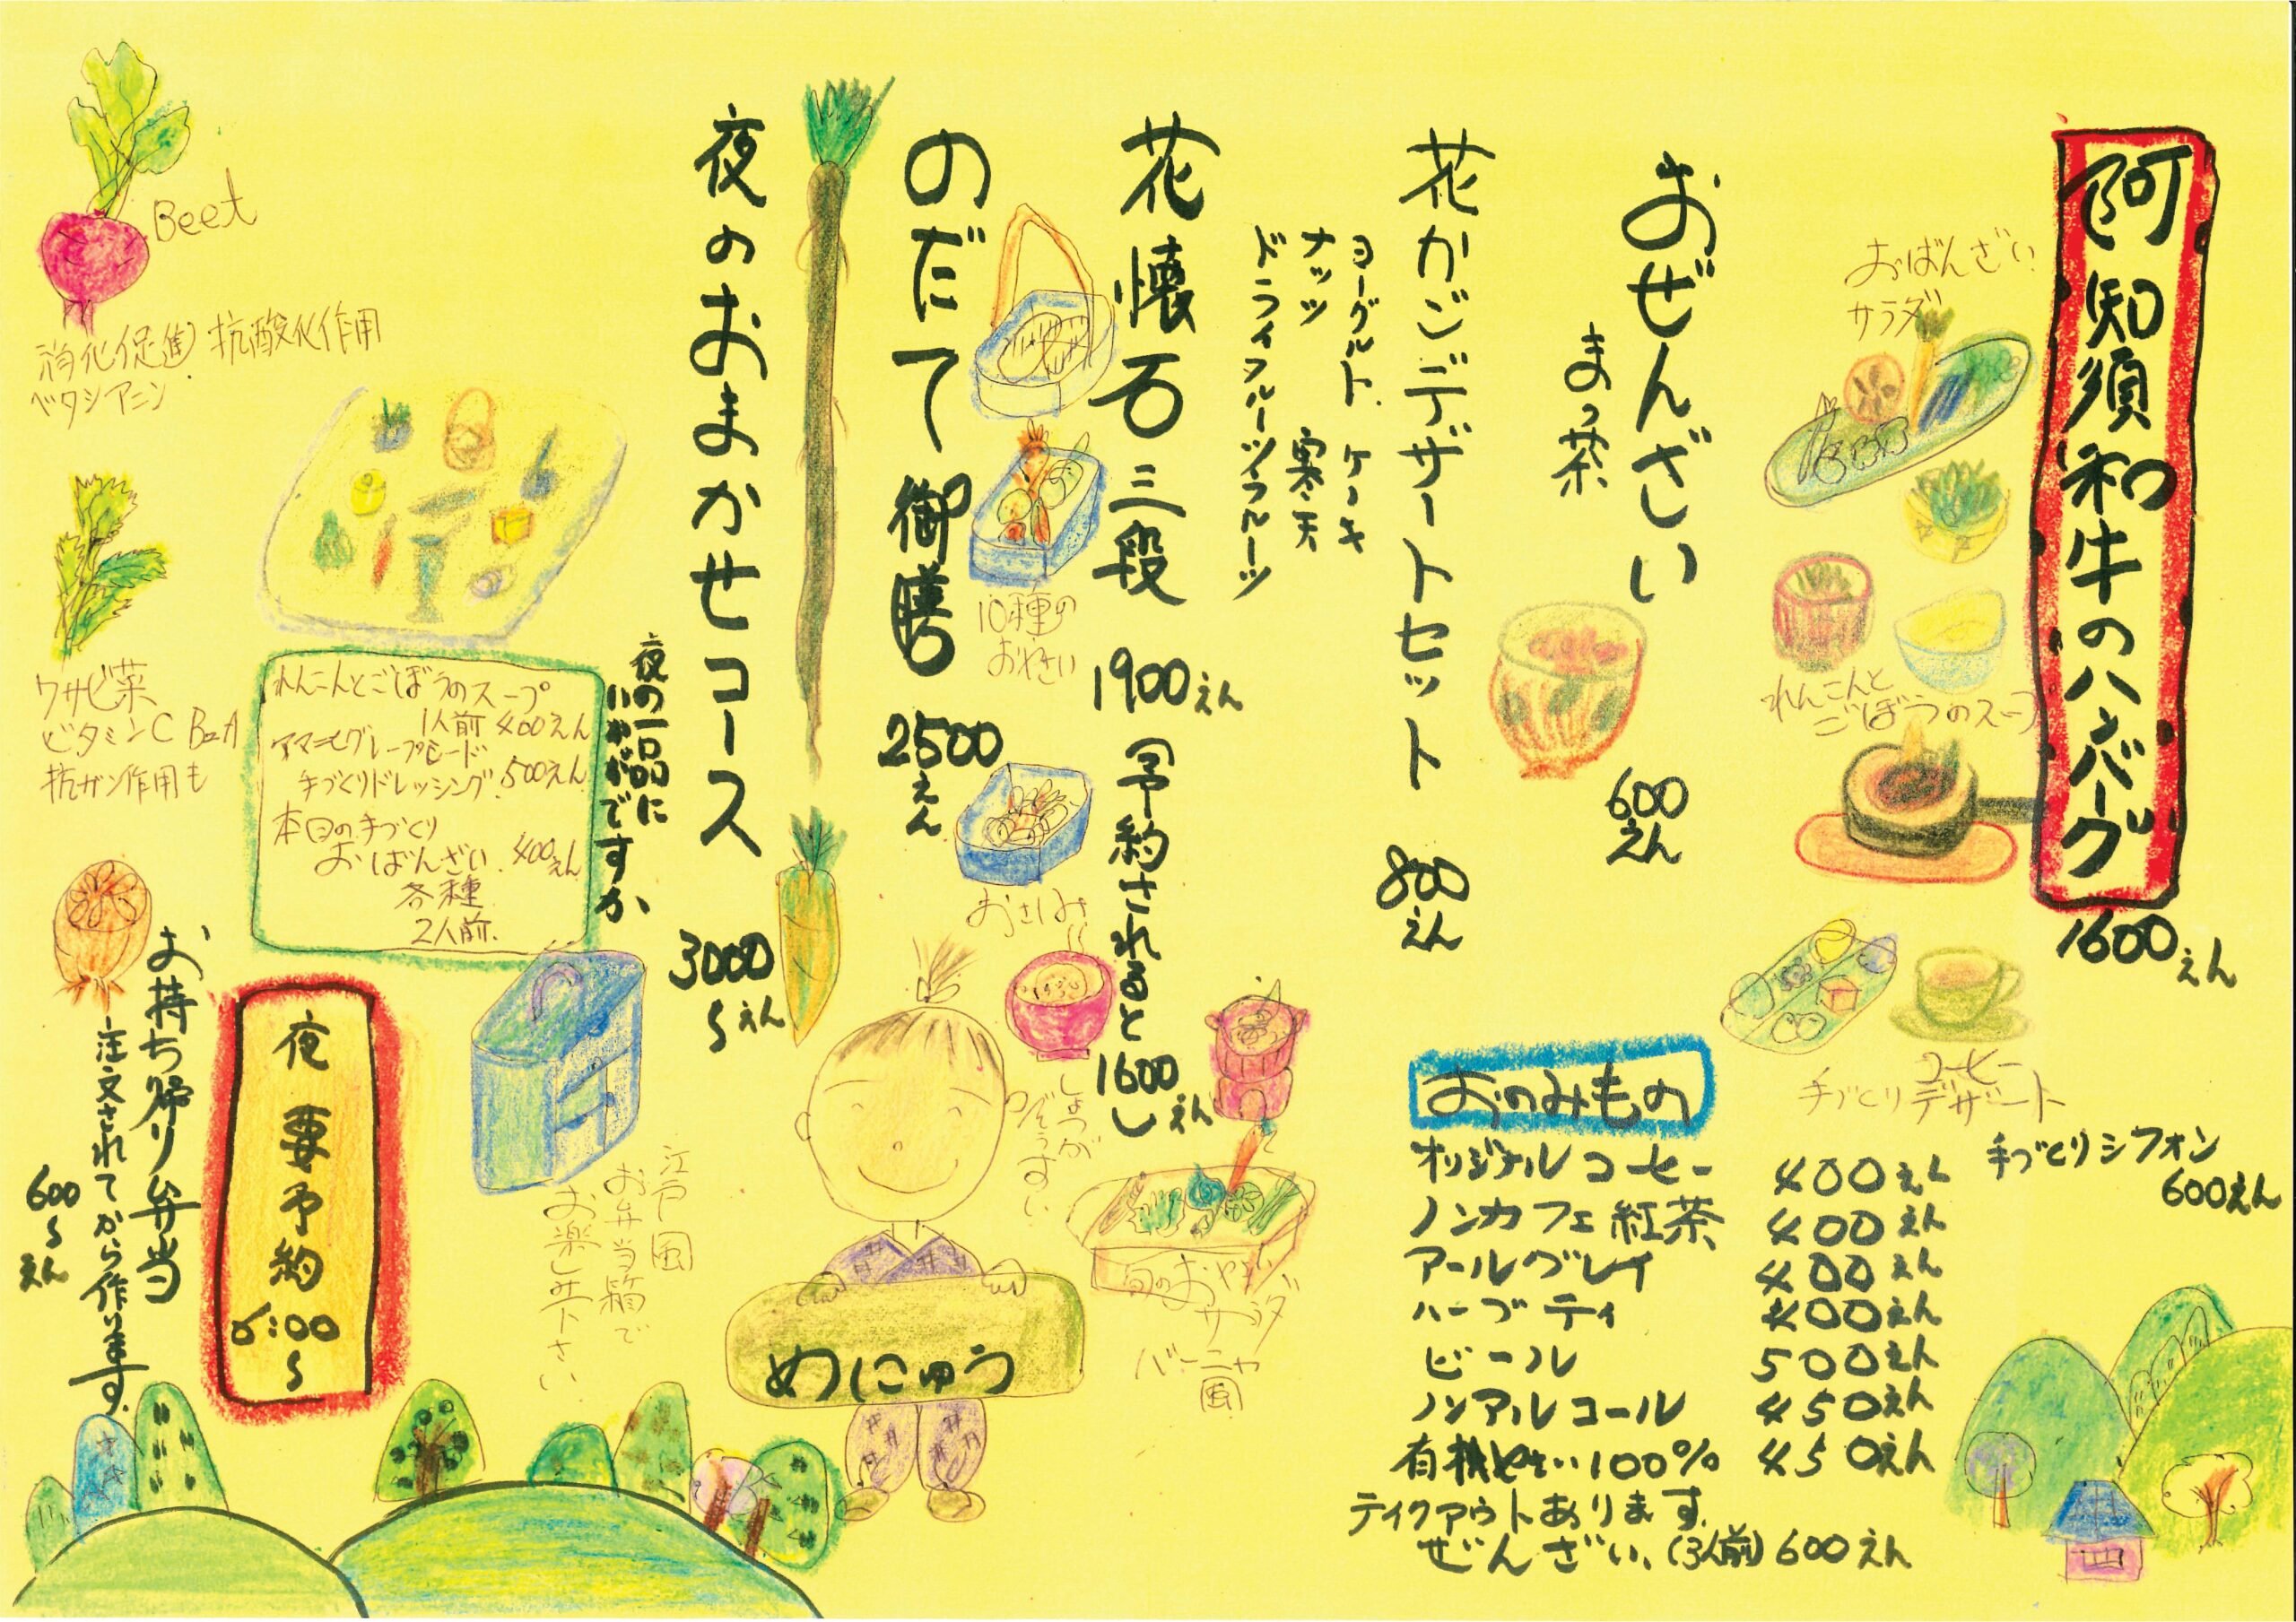 阿知須和牛のハンバーグ
1600えん
おばんざい
サラダ
れんこんと
ごぼうのスープ
コーヒー
手づくりデザート
手づくりシフォン
600えん
おぜんざい
まっ茶
600
えん
花かごデザートセット
800
えん
ヨーグルト、ケーキ
ナッツ 寒天
ドライフルーツ、フルーツ
おのみもの
オリジナルコーヒー 400えん
ノンカフェ紅茶 400えん
アールグレイ 400えん
ハーブティ 400えん
ビール 500えん
ノンアルコール 450えん
有機やさい100% 450えん
テイクアウトあります
ぜんざい、(3人前)600えん
花懐石三段
1900えん
予約されると
1600えん
10種の
おやさい
おさしみ
しょうが
ぞうすい
旬のおやさい
サラダ
バーニャ
風
のだて御膳
2500
えん
夜のおまかせコース
3000
〜えん
めにゅう
江戸風
お弁当箱で
お楽しみ下さい
夜の一品に
いかがですか
れんこんとごぼうのスープ
1人前 400えん
アマニとグレープシード
手づくりドレッシング 500えん
本日の手づくり
おばんざい 400えん
各種
2人前
夜 要予約
6:00
〜
Beet
消化促進 抗酸化作用
ベタシアニン
ワサビ菜
ビタミンC
抗ガン作用も
お持ち帰り弁当
注文されてから作ります。
600
〜
えん